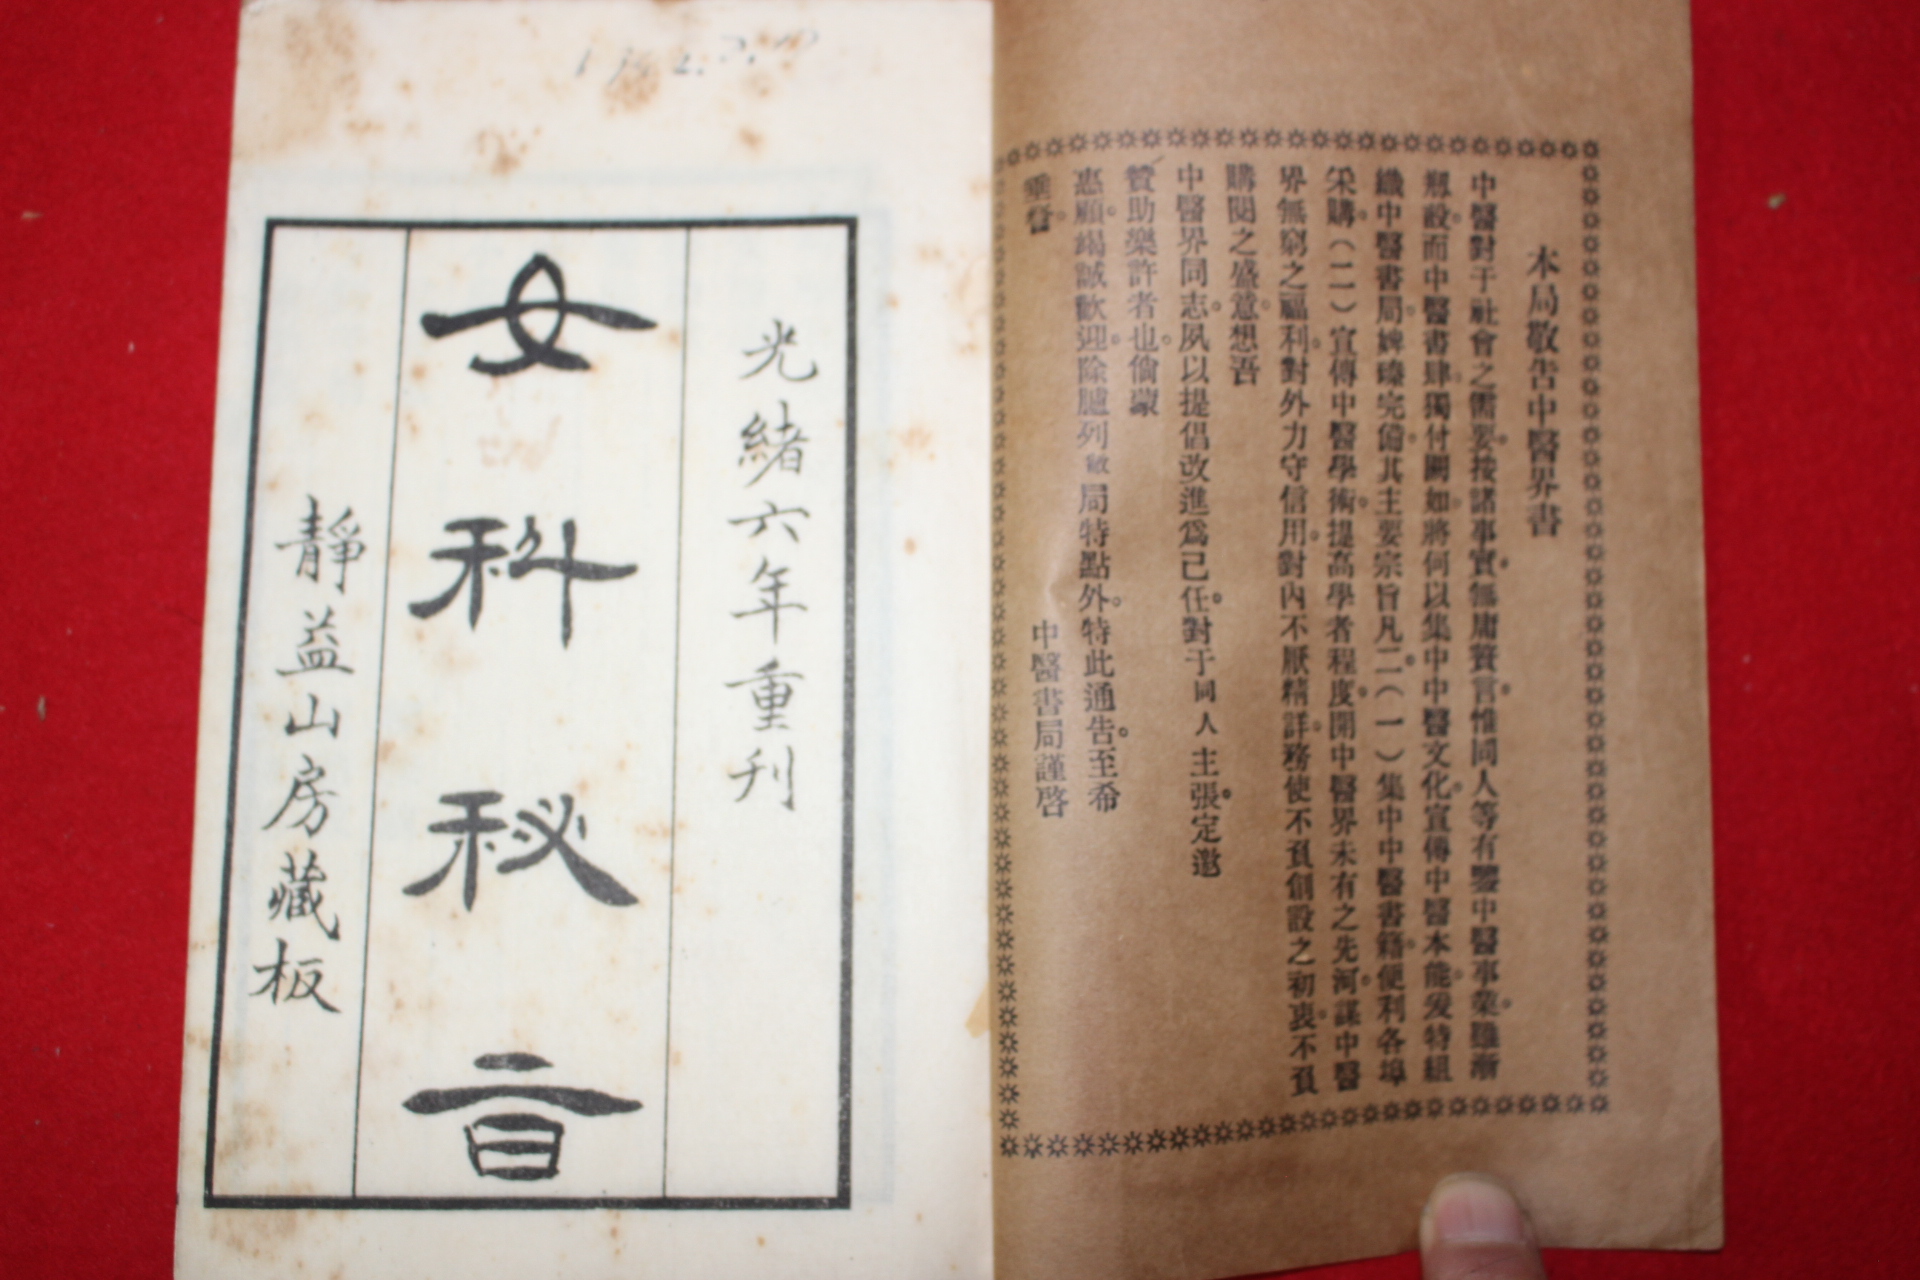 本局敬告中醫界書
中醫對于社會之需要。按諸事實。無庸贅言。惟同人等有鑒中醫事業。雖漸
剏設。而中醫書肆。獨付闕如。將何以集中中醫文化。宣傳中醫本能。爰特組
織中醫書局。完備。其主要宗旨凡二。(一)集中中醫書籍。便利各埠
采購。(二)宣傳中醫學術。提高學者程度。開中醫界未有之先河。謀中醫
界無窮之福利。對外力守信用。對內不厭精詳。務使不負創設之初衷。不負
購閱之盛意。想吾
中醫界同志。夙以提倡改進爲己任。對于同人主張。定邀
贊助樂許者也。倘蒙
惠顧。竭誠歡迎。除臚列敝局特點外。特此通告。至希
垂詧。
中醫書局謹啓
光緒六年重刊
女科秘旨
靜益山房藏板